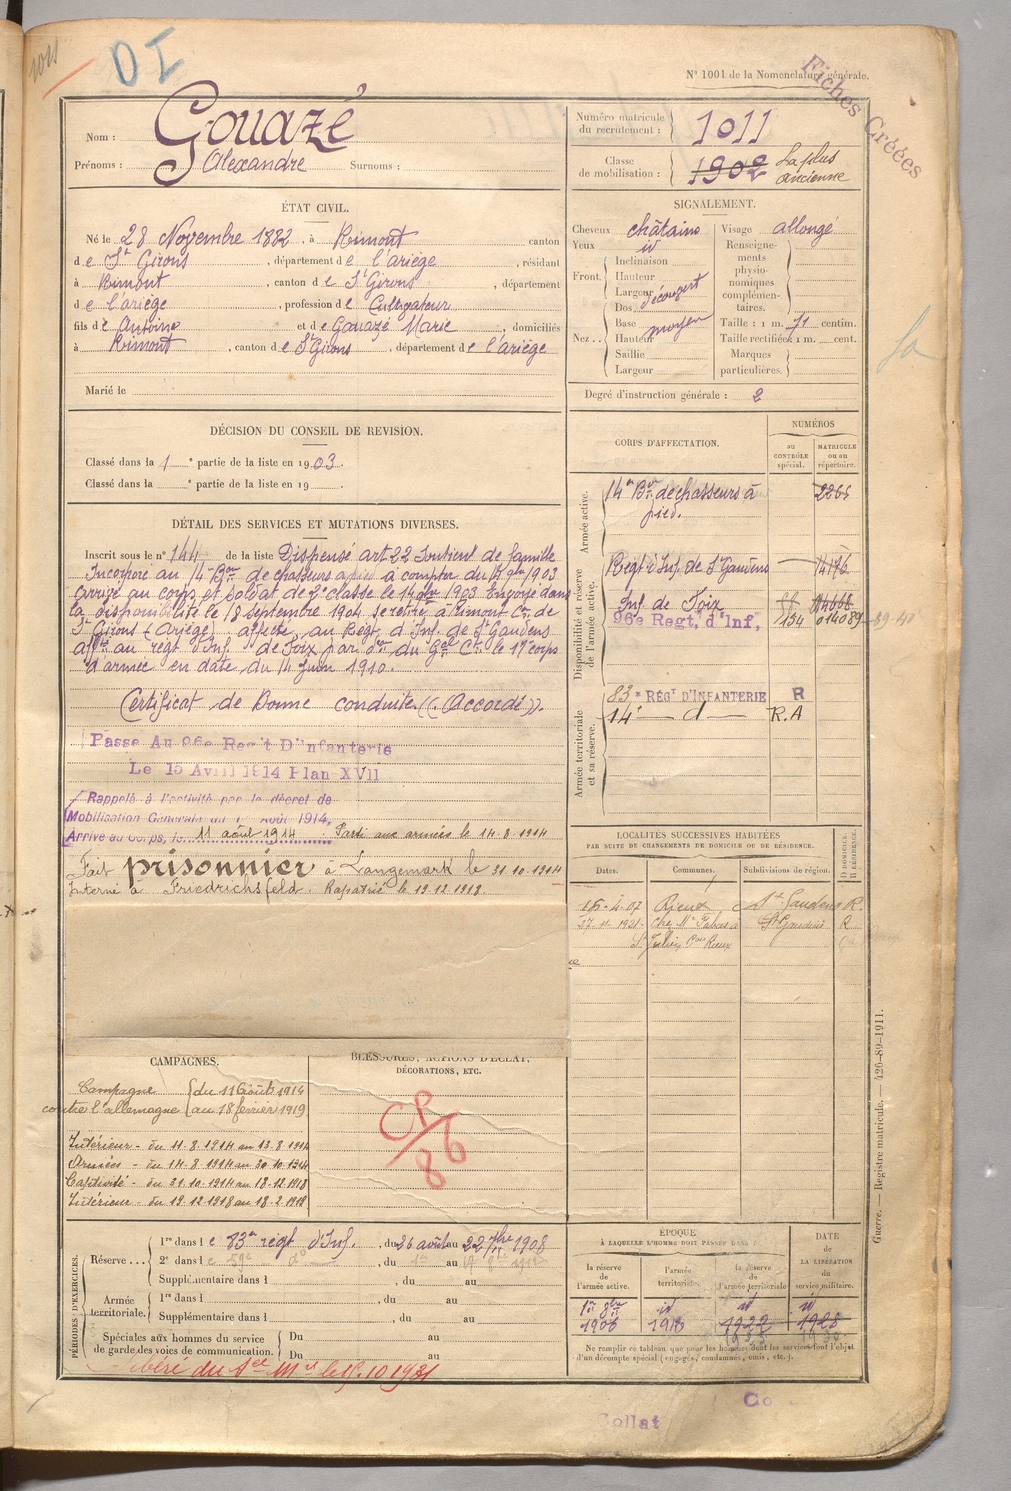 1011
DI
N° 1001 de la Nomenclature générale.
Fiches Créées
Nom : Gouazé
Prénoms : Alexandre Surnoms :
Numéro matricule du recrutement : 1011
Classe de mobilisation : 1902 La plus ancienne
ÉTAT CIVIL.
Né le 28 Novembre 1882, à Rimont canton
de St Girons, département de l'ariège, résidant
à Rimont, canton de St Girons, département
de l'ariège, profession de Cultivateur
fils de Antoine et de Gouazé Marie, domiciliés
à Rimont, canton de St Girons, département de l'ariège
Marié le
SIGNALEMENT.
Cheveux châtains
Yeux id
Front. Inclinaison
Hauteur
Largeur découvert
Nez.. Dos
Base moyen
Hauteur
Saillie
Largeur
Visage allongé
Renseignements physionomiques complémentaires.
Taille : 1 m. 71 centim.
Taille rectifiée: 1 m. cent.
Marques particulières.
Degré d'instruction générale : 2
DÉCISION DU CONSEIL DE REVISION.
Classé dans la 1 e partie de la liste en 1903.
Classé dans la e partie de la liste en 19
DÉTAIL DES SERVICES ET MUTATIONS DIVERSES.
Inscrit sous le n° 144 de la liste Dispensé art 22 Soutient de famille
Incorporé au 14e Bon de chasseurs à pied à compter du 14 9bre 1903
arrivé au corps et soldat de 2e classe le 14 9bre 1903 Envoyé dans
la disponibilité le 18 Septembre 1904 se retire à Rimont Con de
St Girons (Ariège), affecté au Régt d'Inf. de St Gaudens
affté au régt d'Inf. de Foix par on du Gal Ct le 17e corps
d'armée en date du 14 Juin 1910.
Certificat de Bonne conduite ((Accordé)).
Passe Au 96e Reg't D'Infanterie
Le 15 Avril 1914 Plan XVII
Rappelé à l'activité par le décret de
Mobilisation Générale du 1er Août 1914,
Arrivé au Corps, le 11 août 1914. Parti aux armées le 14.8.1914
Fait prisonnier à Langemark le 31.10.1914
Interné à Friedrichsfeld. Rapatrié le 19.12.1918
CORPS D'AFFECTATION.
NUMÉROS
au CONTRÔLE spécial.
MATRICULE ou au répertoire.
Armée active.
14e Bon de chasseurs à pied. 2265
Disponibilité et réserve de l'armée active.
Régt d'Inf. de St Gaudens 14176
Inf. de Foix
96e Regt, d'Inf, 134 014089
Armée territoriale et sa réserve.
83e RÉGT D'INFANTERIE R
14e — d — R.A
LOCALITÉS SUCCESSIVES HABITÉES
PAR SUITE DE CHANGEMENTS DE DOMICILE OU DE RÉSIDENCE.
Dates. Communes. Subdivisions de région. D DOMICILE. R RÉSIDENCE.
Rieux St Gaudens R.
St Gaudens R
St Julien Con Rieux
CAMPAGNES.
Campagne contre l'allemagne du 11 Août 1914
au 18 février 1919
Intérieur - du 11.8.1914 au 13.8.1914
Armées - du 14.8.1914 au 30.10.1914
Captivité - du 31.10.1914 au 18.12.1918
Intérieur - du 19.12.1918 au 18.2.1919
BLESSURES, ACTIONS D'ÉCLAT,
DÉCORATIONS, ETC.
CP/86
PÉRIODES D'EXERCICES.
Réserve... 1re dans le 83e régt d'Inf., du 26 août au 22 7bre 1908
2e dans le 59e d°, du au
Supplémentaire dans l , du au
Armée territoriale. 1re dans l , du au
Supplémentaire dans l , du au
Spéciales aux hommes du service de garde des voies de communication. Du au
Du au
Libéré du Sce Mre le 15.10.1931
ÉPOQUE
À LAQUELLE L'HOMME DOIT PASSER DANS :
la réserve de l'armée active.
l'armée territoriale.
la réserve de l'armée territoriale
DATE de LA LIBÉRATION du service militaire.
1er 8bre 1906
id 1916
id 1922
id 1928
Ne remplir ce tableau que pour les hommes dont les services font l'objet
d'un décompte spécial (engagés, condamnés, omis, etc.).
Guerre. — Registre matricule. — 426-89-1911.
Collat
Co